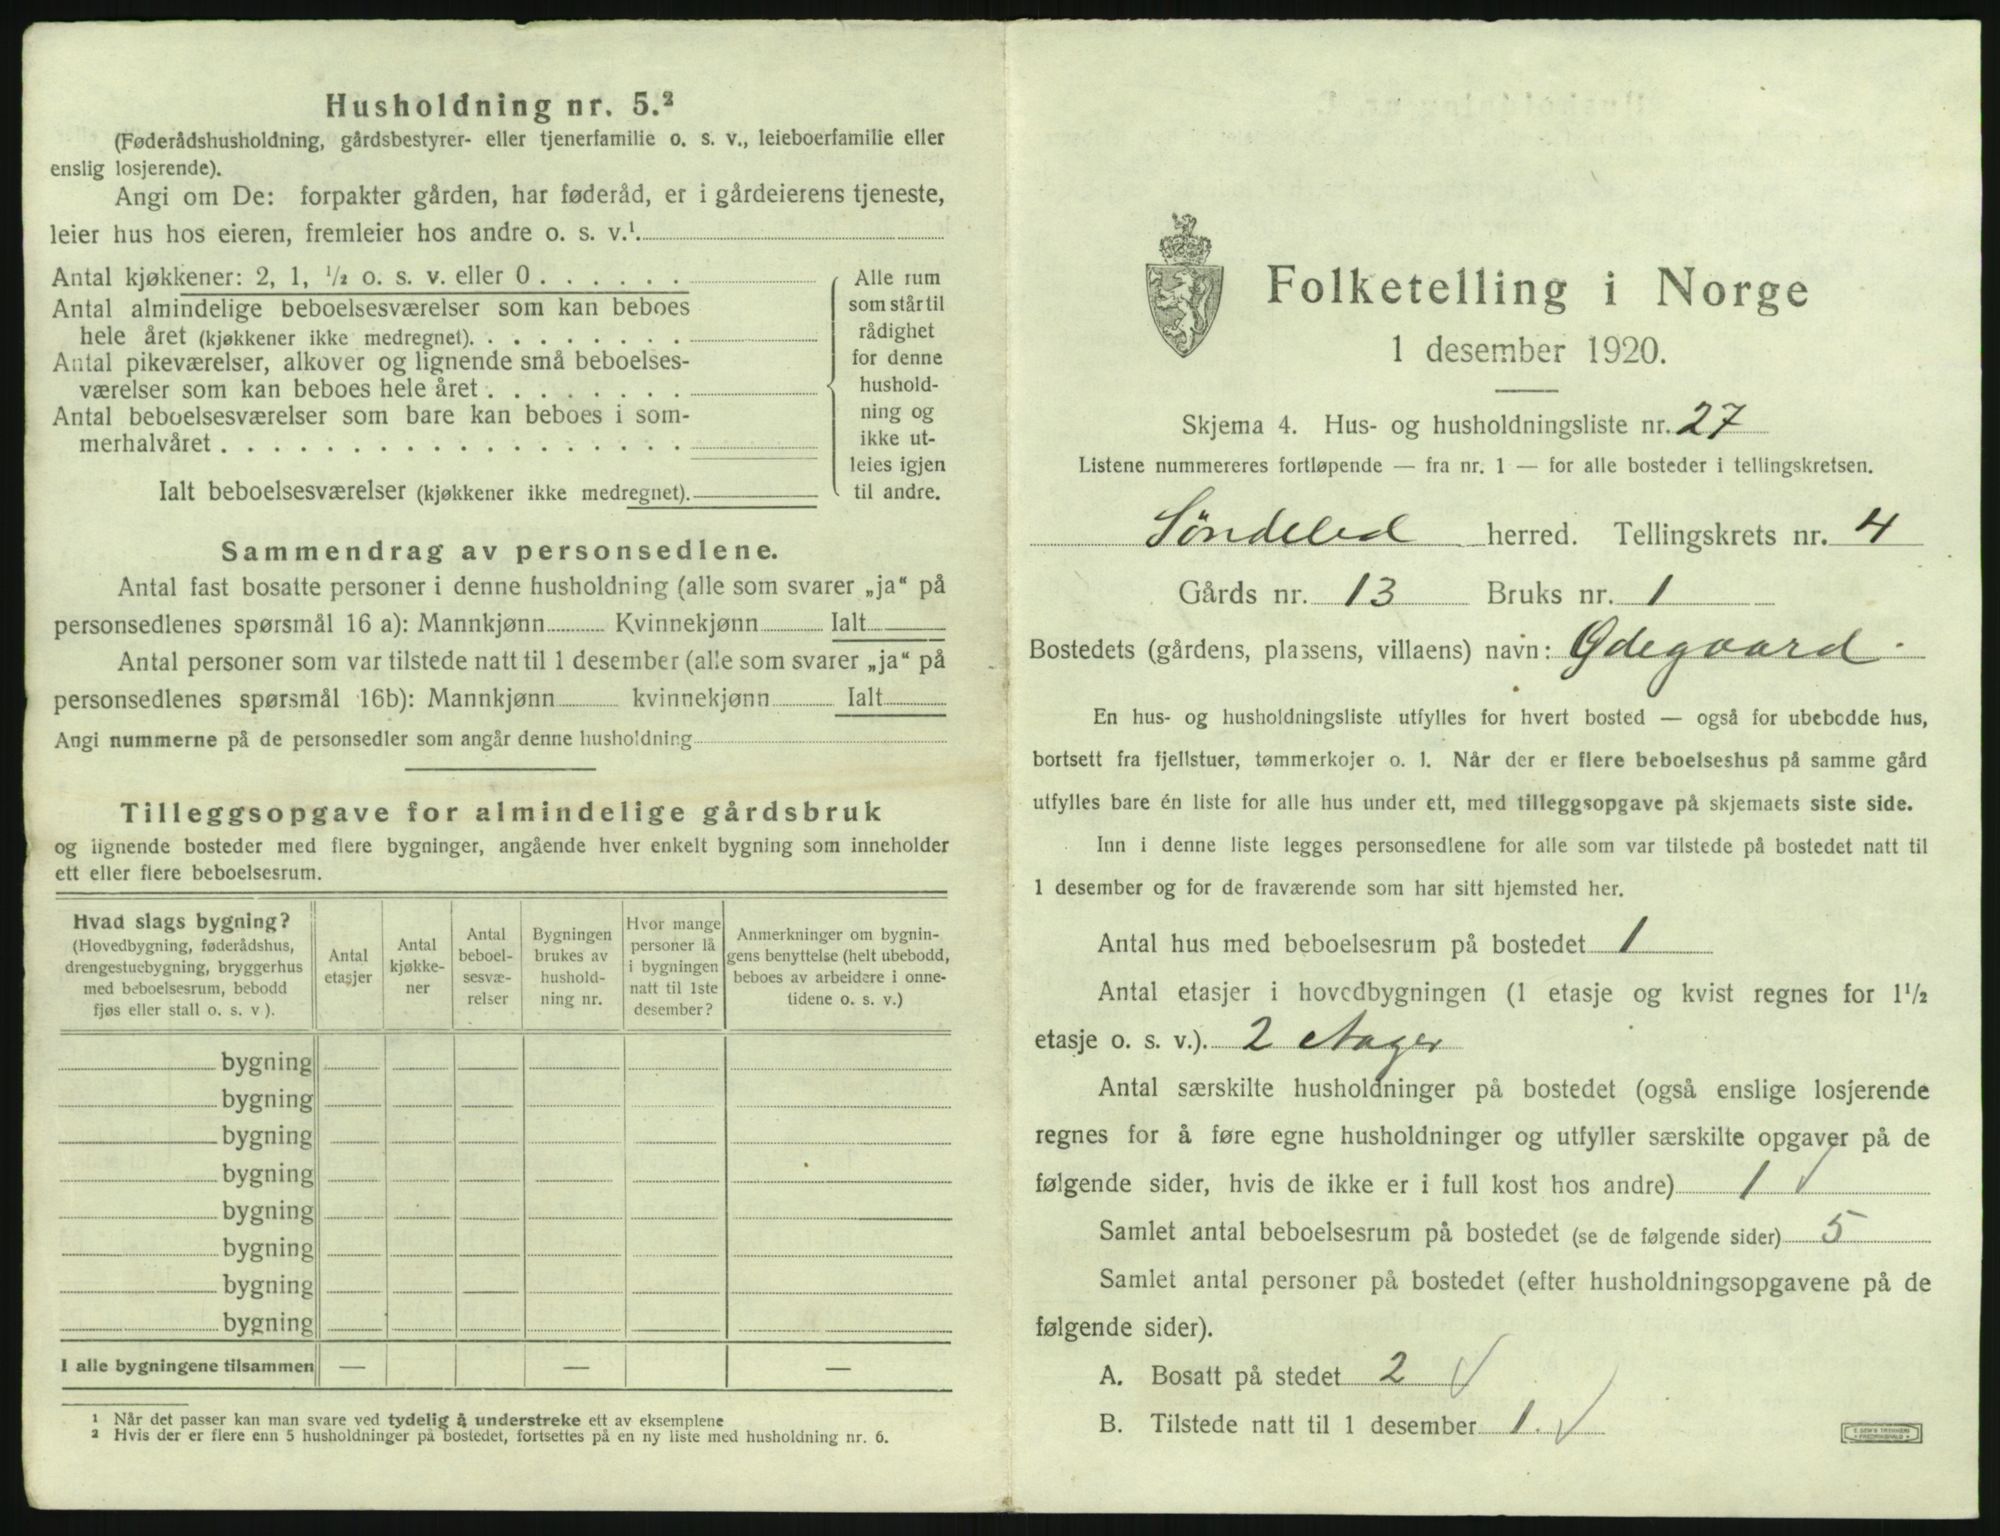 Husholdning nr. 5.²
(Føderådshusholdning, gårdsbestyrer- eller tjenerfamilie o. s. v., leieboerfamilie eller
enslig losjerende).
Angi om De: forpakter gården, har føderåd, er i gårdeierens tjeneste,
leier hus hos eieren, fremleier hos andre o. s. v.¹
Antal kjøkkener: 2, 1, ½ o. s. v. eller 0 . . . . . .
Antal almindelige beboelsesværelser som kan beboes
hele året (kjøkkener ikke medregnet). . . . . . . . .
Antal pikeværelser, alkover og lignende små beboelses-
værelser som kan beboes hele året . . . . . . . .
Antal beboelsesværelser som bare kan beboes i som-
merhalvåret . . . . . . . . . . . . . . . . . .
Ialt beboelsesværelser (kjøkkener ikke medregnet).
Alle rum
som står til
rådighet
for denne
hushold-
ning og
ikke ut-
leies igjen
til andre.
Sammendrag av personsedlene.
Antal fast bosatte personer i denne husholdning (alle som svarer „ja“ på
personsedlenes spørsmål 16 a): Mannkjønn Kvinnekjønn Ialt
Antal personer som var tilstede natt til 1 desember (alle som svarer „ja“ på
personsedlenes spørsmål 16b): Mannkjønn kvinnekjønn Ialt
Angi nummerne på de personsedler som angår denne husholdning
Tilleggsopgave for almindelige gårdsbruk
og lignende bosteder med flere bygninger, angående hver enkelt bygning som inneholder
ett eller flere beboelsesrum.
Hvad slags bygning?
(Hovedbygning, føderådshus,
drengestuebygning, bryggerhus
med beboelsesrum, bebodd
fjøs eller stall o. s. v ).
Antal
etasjer
Antal
kjøkke-
ner
Antal
beboel-
sesvæ-
relser
Bygningen
brukes av
hushold-
ning nr.
Hvor mange
personer lå
i bygningen
natt til 1ste
desember?
Anmerkninger om bygnin-
gens benyttelse (helt ubebodd,
beboes av arbeidere i onne-
tidene o. s. v.)
bygning
bygning
bygning
bygning
bygning
bygning
bygning
bygning
I alle bygningene tilsammen — — —
¹ Når det passer kan man svare ved tydelig å understreke ett av eksemplene
² Hvis der er flere enn 5 husholdninger på bostedet, fortsettes på en ny liste med husholdning nr. 6.
Folketelling i Norge
1 desember 1920.
Skjema 4. Hus- og husholdningsliste nr. 27
Listene nummereres fortløpende — fra nr. 1 — for alle bosteder i tellingskretsen.
Søndeled herred. Tellingskrets nr. 4
Gårds nr. 13 Bruks nr. 1
Bostedets (gårdens, plassens, villaens) navn: Ødegaard
En hus- og husholdningsliste utfylles for hvert bosted — også for ubebodde hus,
bortsett fra fjellstuer, tømmerkojer o. l. Når der er flere beboelseshus på samme gård
utfylles bare én liste for alle hus under ett, med tilleggsopgave på skjemaets siste side.
Inn i denne liste legges personsedlene for alle som var tilstede på bostedet natt til
1 desember og for de fraværende som har sitt hjemsted her.
Antal hus med beboelsesrum på bostedet 1
Antal etasjer i hovedbygningen (1 etasje og kvist regnes for 1½
etasje o. s. v.). 2 etager
Antal særskilte husholdninger på bostedet (også enslige losjerende
regnes for å føre egne husholdninger og utfyller særskilte opgaver på de
følgende sider, hvis de ikke er i full kost hos andre) 1 √
Samlet antal beboelsesrum på bostedet (se de følgende sider) 5
Samlet antal personer på bostedet (efter husholdningsopgavene på de
følgende sider).
A. Bosatt på stedet 2 √
B. Tilstede natt til 1 desember 1. √